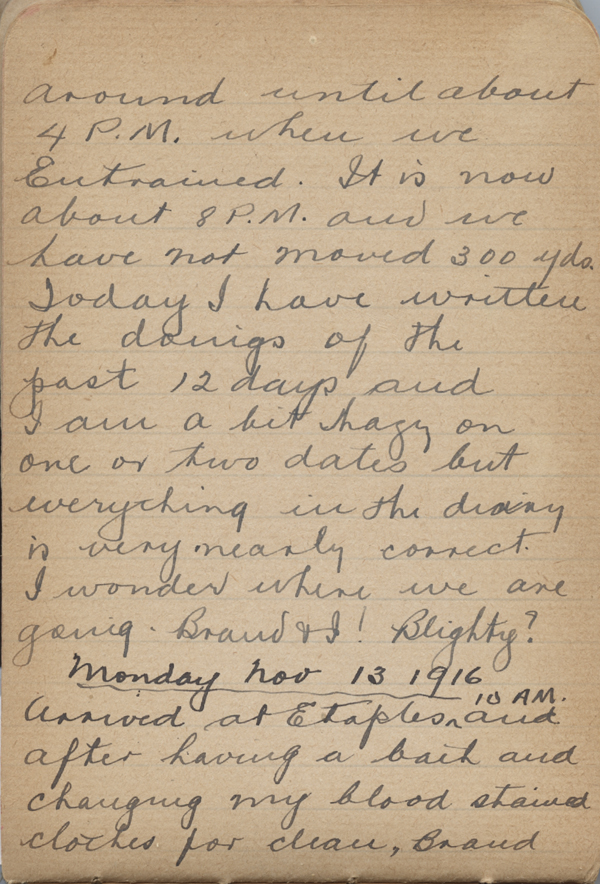 around until about
4 P.M. when we
Entrained. It is now
about 8 P.M. and we
have not moved 300 yds.
Today I have written
the doings of the
past 12 days and
I am a bit hazy on
one or two dates but
everything in the diary
is very nearly correct.
I wonder where we are
going. Brand & I! Blighty?
Monday Nov 13 1916
10 AM.
Arrived at Etaples ^ and
after having a bath and
changing my blood stained
clothes for clean, Brand